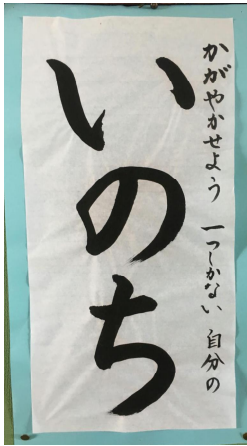 かがやかせよう 一つしかない 自分の
いのち